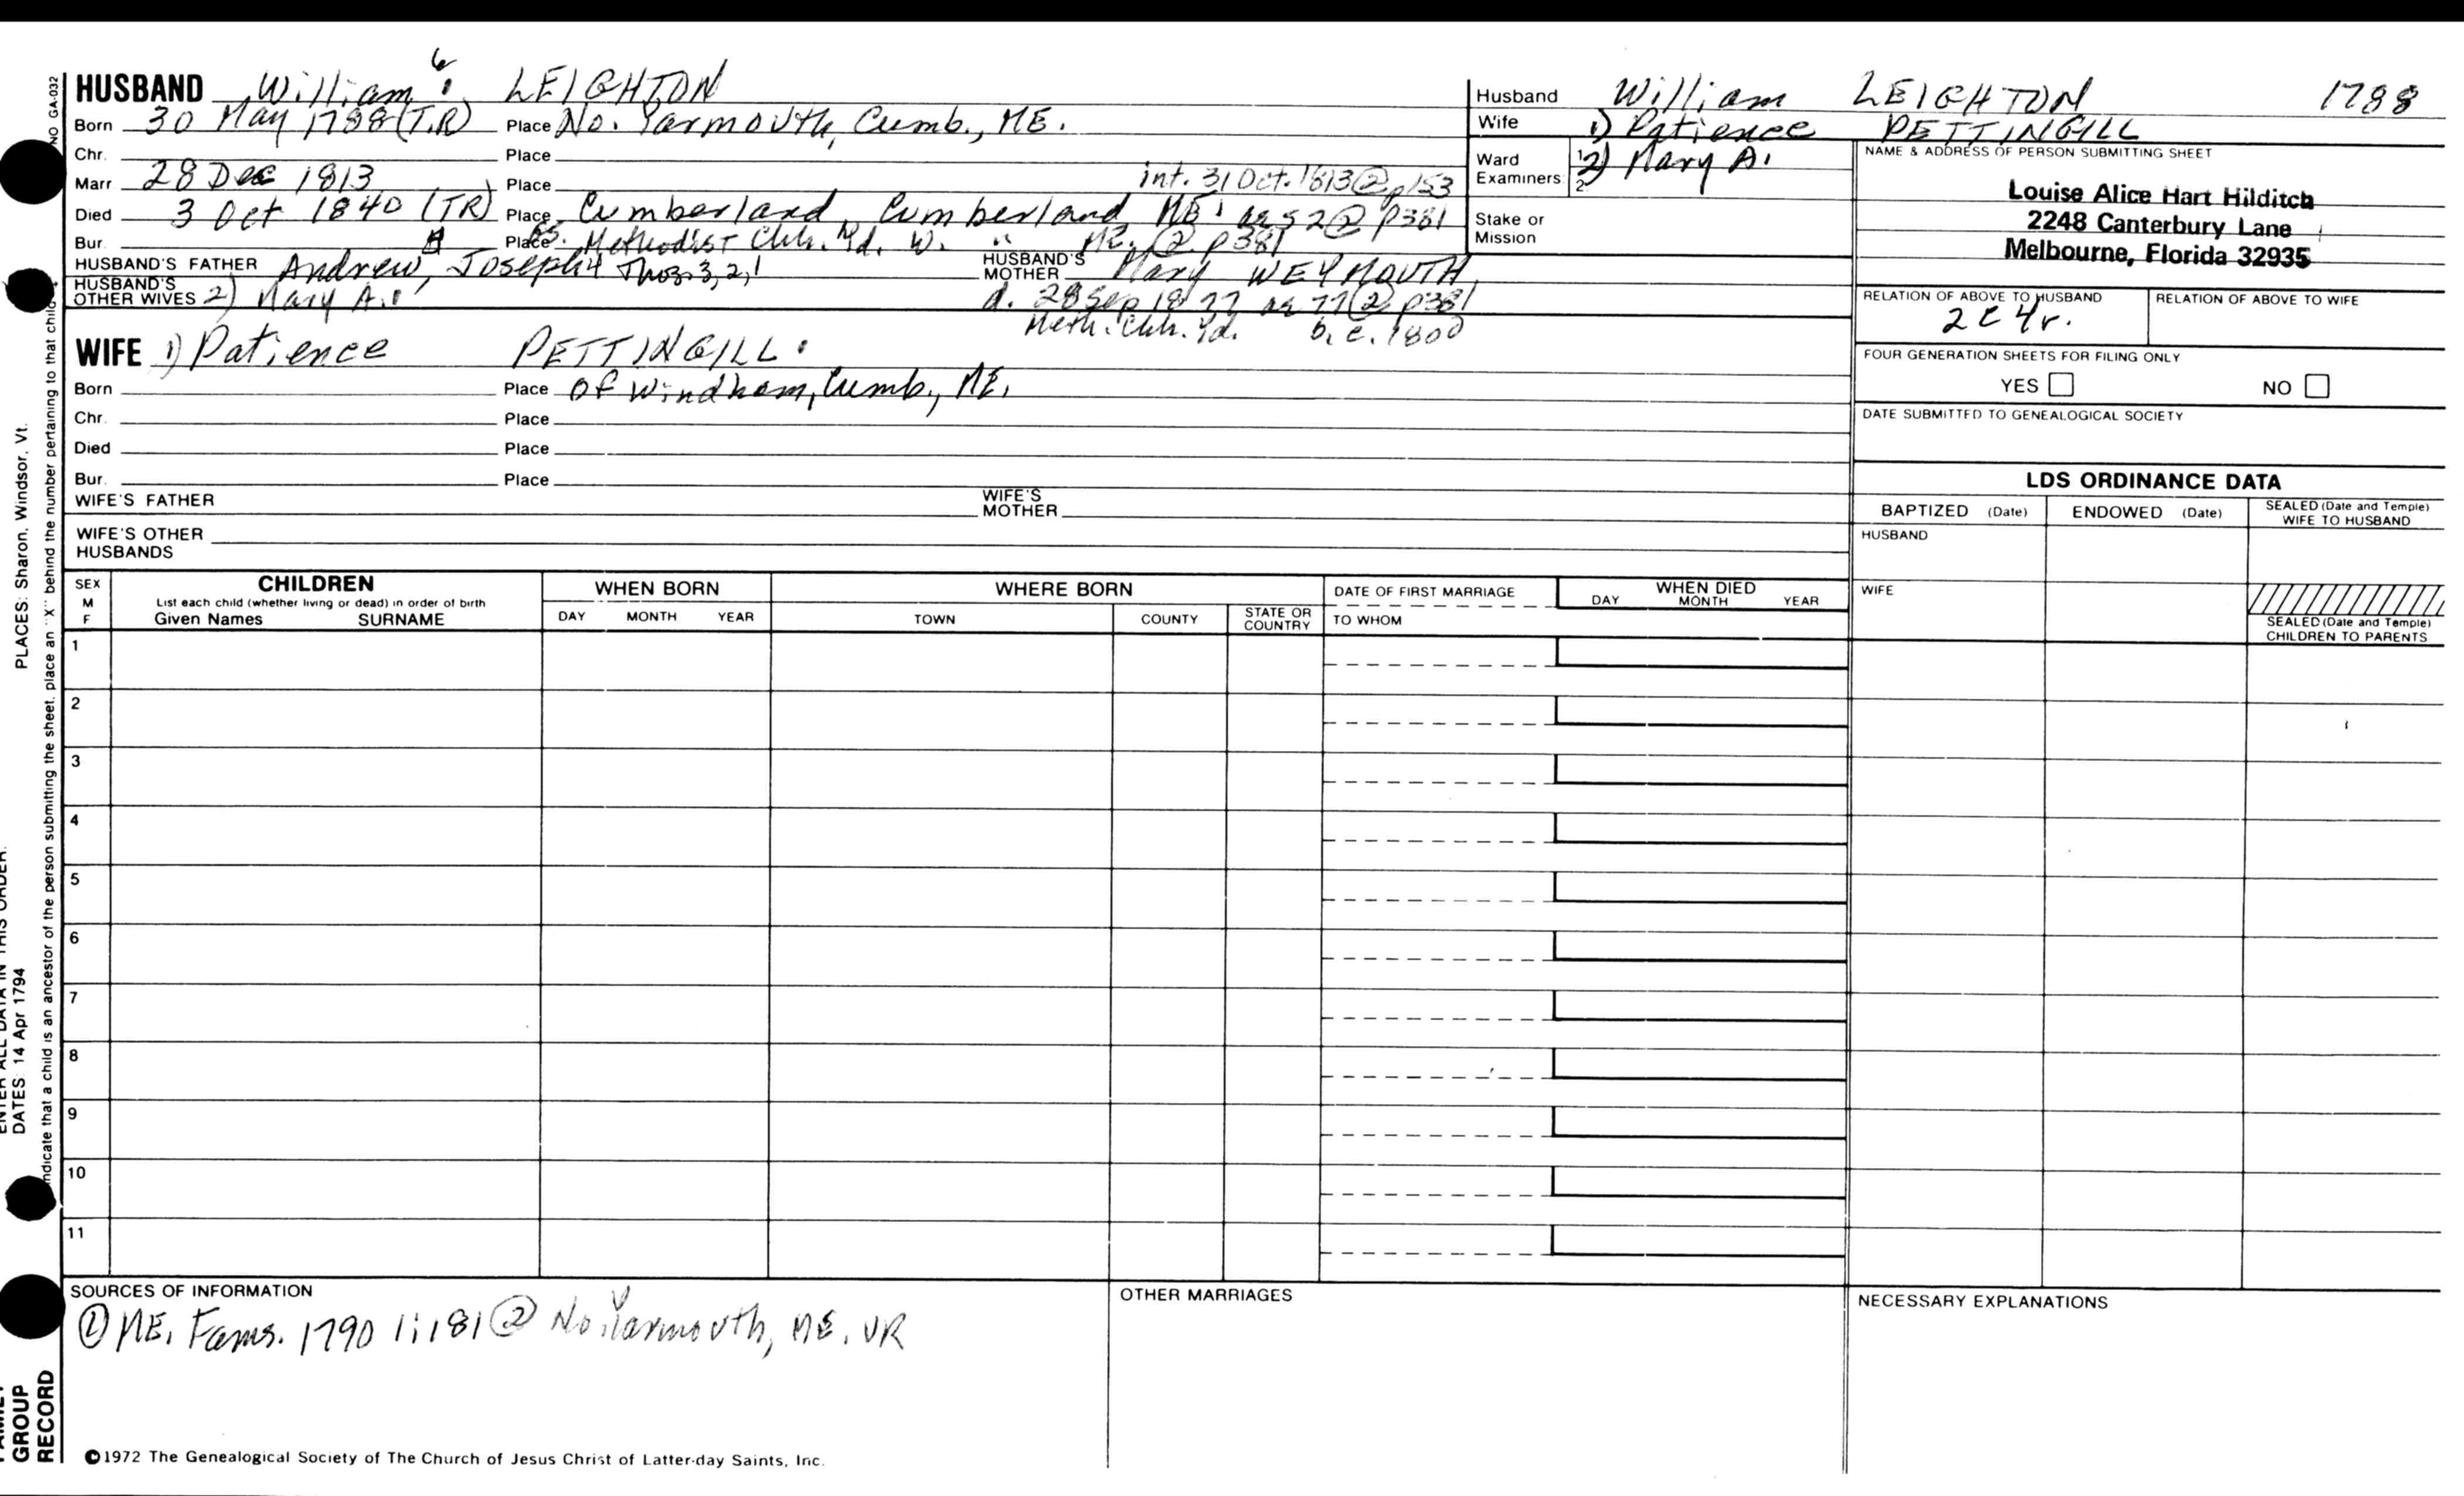 HUSBAND William 6. LEIGHTON
Born 30 May 1788 (T.R) Place No. Yarmouth, Cumb., ME.
Chr. Place
Marr 28 Dec 1813 Place int. 31 Oct. 1813 @ p153
Died 3 Oct 1840 (TR) Place Cumberland, Cumberland ME. ag 52 @ p381
Bur. Place Methodist Chh. Yd. W. " ME. @ p381
HUSBAND'S FATHER Andrew, Joseph 4 Thos. 3, 2, 1 HUSBAND'S MOTHER Mary WEYMOUTH
HUSBAND'S OTHER WIVES 2) Mary A. d. 28 Sep 1877 ag 77 @ p381
Meth. Chh. Yd. b. c. 1800
WIFE 1) Patience PETTINGILL.
Born Place Of Windham, Cumb., ME.
Chr. Place
Died Place
Bur. Place
WIFE'S FATHER WIFE'S MOTHER
WIFE'S OTHER HUSBANDS
Husband William LEIGHTON 1788
Wife 1) Patience PETTINGILL
Ward Examiners 1. 2. 2) Mary A.
Stake or Mission
NAME & ADDRESS OF PERSON SUBMITTING SHEET
Louise Alice Hart Hilditch
2248 Canterbury Lane
Melbourne, Florida 32935
RELATION OF ABOVE TO HUSBAND RELATION OF ABOVE TO WIFE
2C4r.
FOUR GENERATION SHEETS FOR FILING ONLY
YES NO
DATE SUBMITTED TO GENEALOGICAL SOCIETY
LDS ORDINANCE DATA
BAPTIZED (Date) ENDOWED (Date) SEALED (Date and Temple) WIFE TO HUSBAND
HUSBAND
WIFE
SEALED (Date and Temple) CHILDREN TO PARENTS
SEX M F CHILDREN WHEN BORN WHERE BORN DATE OF FIRST MARRIAGE WHEN DIED
List each child (whether living or dead) in order of birth
Given Names SURNAME DAY MONTH YEAR TOWN COUNTY STATE OR COUNTRY TO WHOM DAY MONTH YEAR
1
2
3
4
5
6
7
8
9
10
11
SOURCES OF INFORMATION OTHER MARRIAGES NECESSARY EXPLANATIONS
① ME. Fams. 1790 1:181 ② No. Yarmouth, ME. VR
©1972 The Genealogical Society of The Church of Jesus Christ of Latter-day Saints, Inc.
NO GA-032
indicate that a child is an ancestor of the person submitting the sheet, place an "X" behind the number pertaining to that child
PLACES: Sharon, Windsor, Vt.
ENTER ALL DATA IN THIS ORDER:
DATES: 14 Apr 1794
FAMILY
GROUP
RECORD